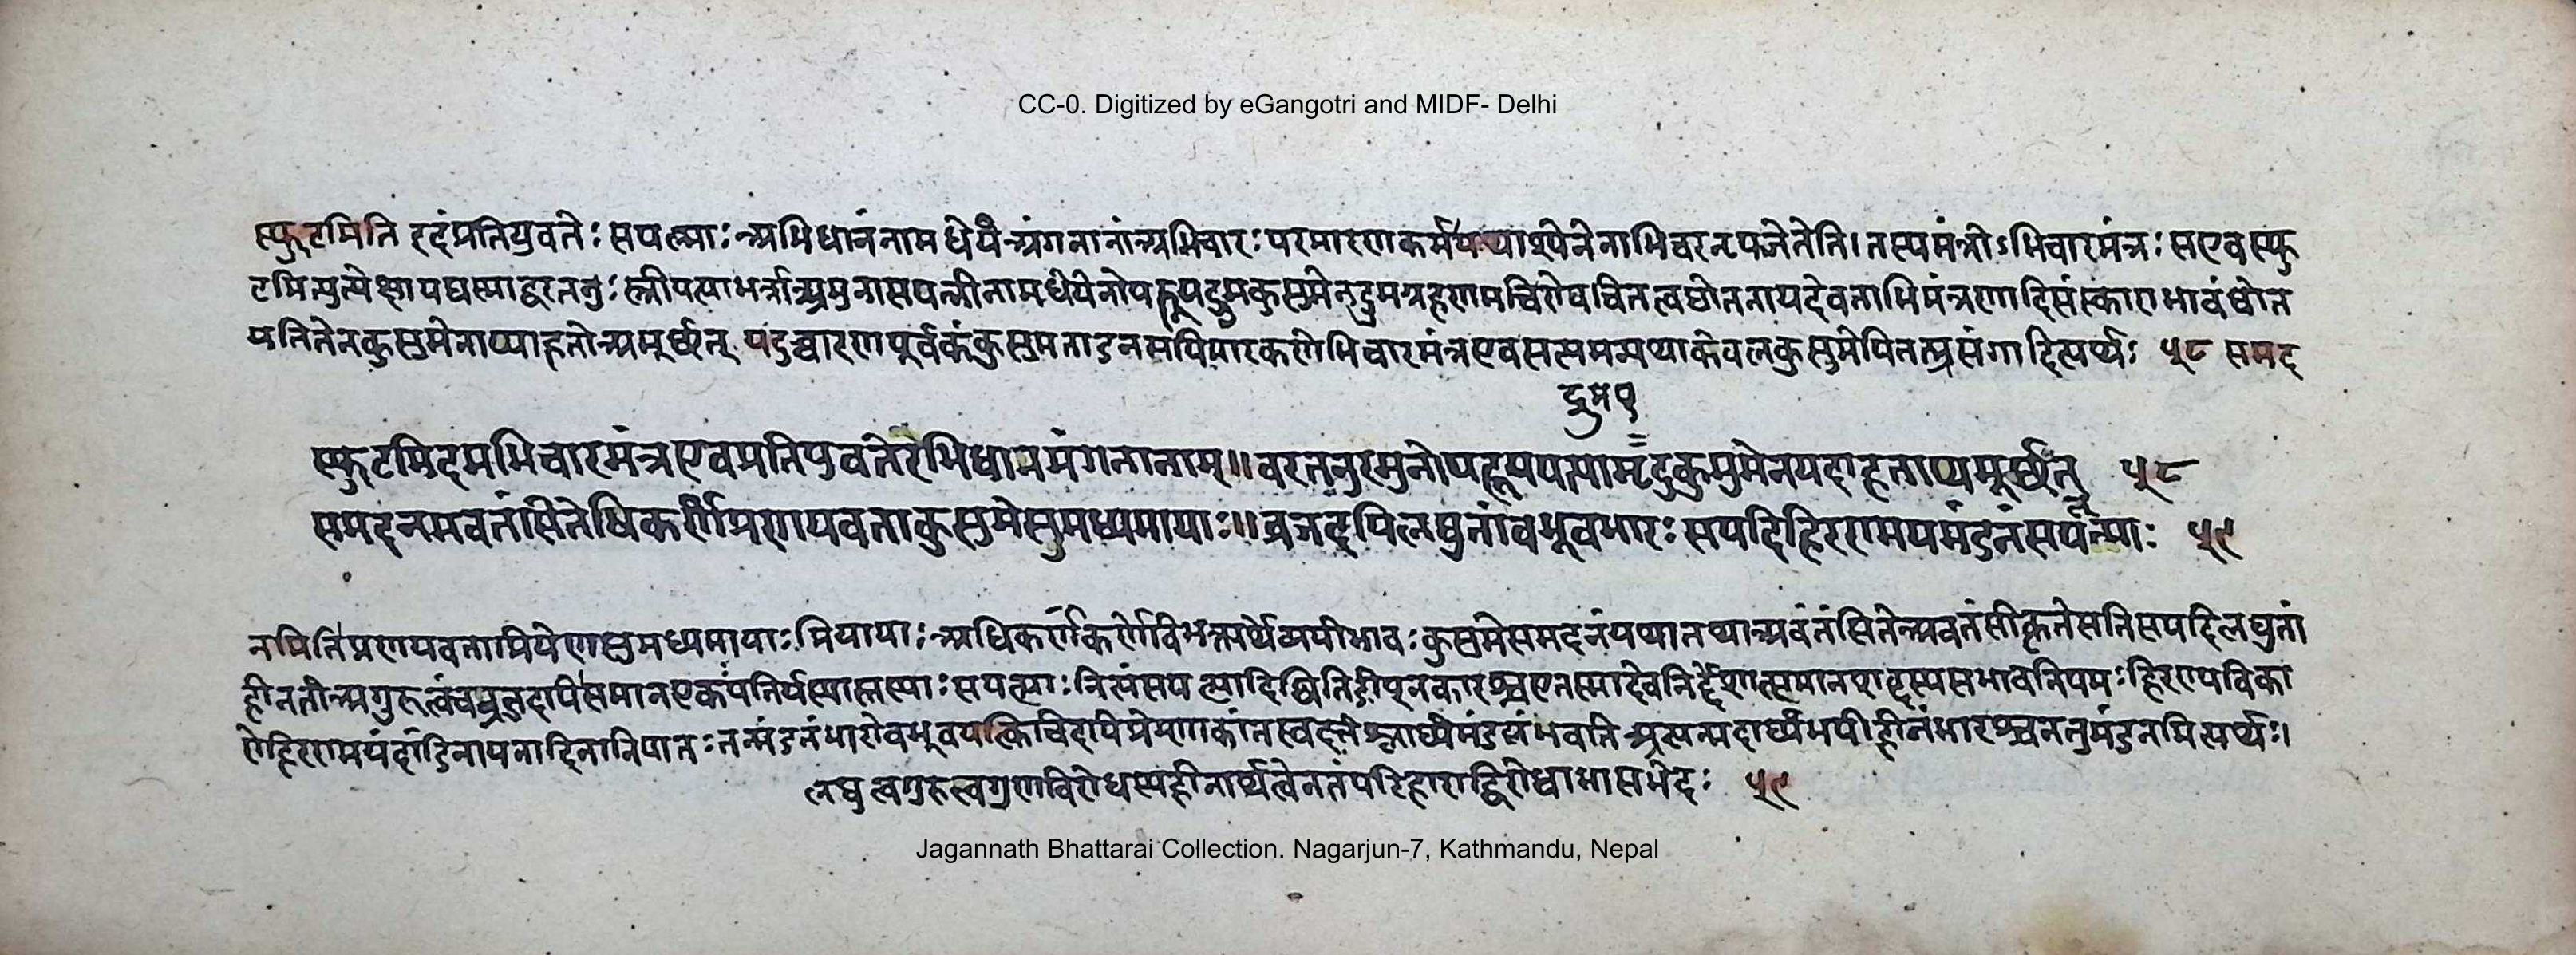 CC-0. Digitized by eGangotri and MIDF- Delhi
स्फुटमिति इदं प्रतियुवतेः सपत्न्याः अभिधानं नामधेयं अंगनानां अभिचारः परमारणकर्म यथा श्येनेनाभिचरन् यजेतेति। तस्य मंत्रोऽभिचारमंत्रः स एव स्फु
टमित्युत्प्रेक्षा यद्यस्माद्वरतनुः स्त्री पत्या भर्त्रा अमुना सपत्नीनामधेयेनोपहूय द्रुमकुसुमेन द्रुमग्रहणम
यति तेन कुसुमेनाप्याहता अमूर्छत् यदुच्चारणपूर्वकं कुसुमताडनमपि मारकं सोभिचारमंत्र एव सत्यमन्यथा केवलकुसुमेपि तत्प्रसंगादित्यर्थः ५८ समद
द्रुम १
स्फुटमिदमभिचारमंत्र एव प्रतियुवतेरभिधानमंगनानाम्॥ वरतनुरमुनोपहूय पत्या मृदुकुसुमेन यदाहताप्यमूर्छत् ५८
समदनमवतंसितेधिकर्णं प्रणयवता कुसुमे सुमध्यमायाः॥ व्रजदपि लघुतां बभूव भारः सपदि हिरण्मयमंडनं सपत्न्याः ५९
नमिति प्रणयवता प्रियेण सुमध्यमायाः प्रियायाः अधिकर्णं कर्णे विभक्त्यर्थेव्ययीभावः कुसुमे समदनं यथा तथा अवतंसिते अवतंसीकृते सति सपदि लघुतां
हीनतां अगुरुत्वं च व्रजदपि समान एकः पतिर्यस्यास्तस्याः सपत्न्याः नित्यं सपत्न्यादिष्विति ङीप् नकारश्च एतस्मादेव निर्देशात्समानशब्दस्य सभावनियमः हिरण्यविका
रो हिरण्मयं दांडिनायनादिना निपातः तन्मंडनं भारो बभूव यत्किंचिदपि प्रेम्णा कांतस्वदत्तं श्लाघ्यं मंडनं भवति अन्यन्महार्घ्यमपि हीनं भारश्च न तु मंडनमित्यर्थः।
लघुत्वगुरुत्वगुणविरोधस्य हीनार्थत्वेन तत्परिहाराद्विरोधाभासभेदः ५९
Jagannath Bhattarai Collection. Nagarjun-7, Kathmandu, Nepal